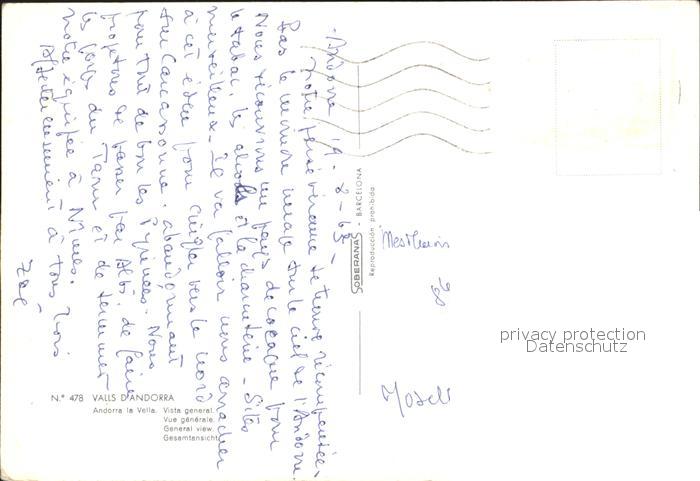 Andorre 19-8-65-
Notre persévérance se trouve récompensée.
Pas le moindre nuage sur le ciel de l'Andorre
Nous découvrons un pays de cocagne pour
le tabac, les alcools et la charcuterie - Sites
merveilleux - Il va falloir nous arracher
à cet éden pour cingler vers le nord
sur Carcassonne. abandonnant
pour tout de bon les Pyrénées. Nous
projetons de passer par Albi, de faire
les gorges du Tarn et de terminer
notre équipée à Nîmes.
Affectueusement à tous trois
SOBERANAS - BARCELONA
Reproducción prohibida
Moselle
N.º 478 VALLS D'ANDORRA
Andorra la Vella. Vista general.
Vue générale.
General view.
Gesamtansicht.
privacy protection
Datenschutz